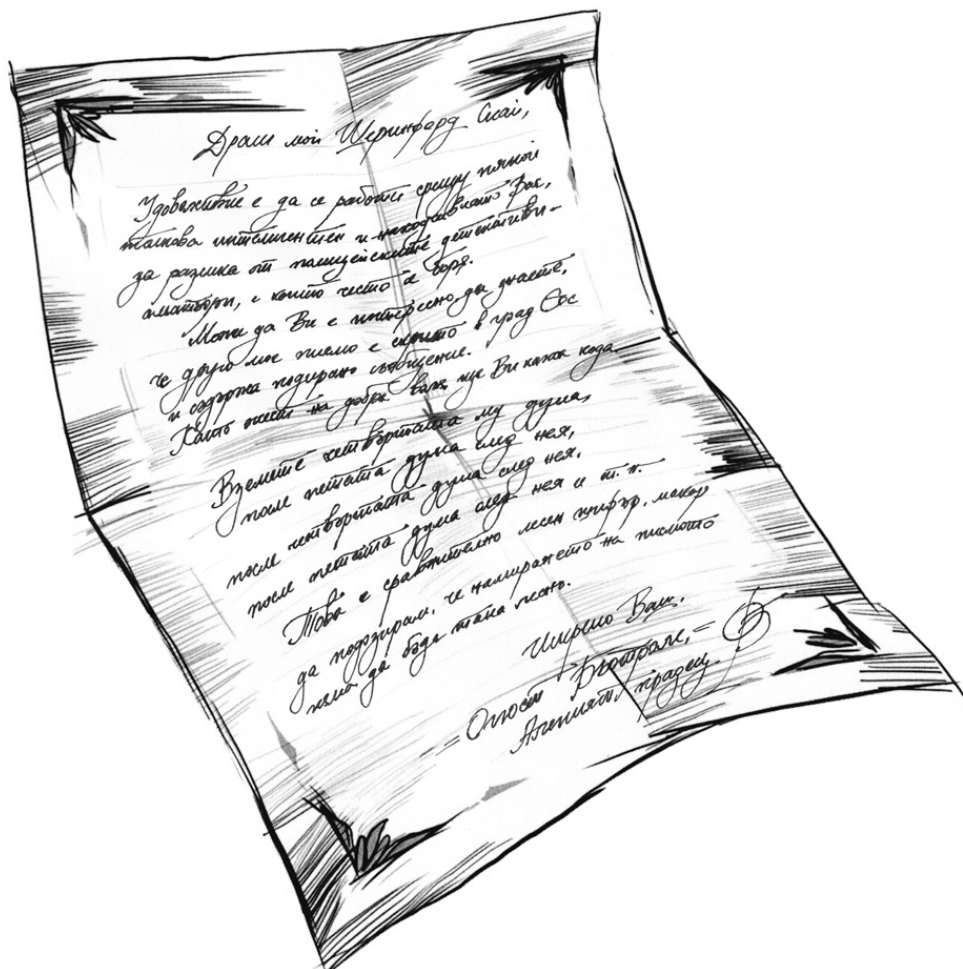 Драги мой Шеринфорд Скай,
Удоволствие е да се работи срещу някой
толкова интелигентен и находчив като Вас,
за разлика от полицейските детективи-
аматьори, с които често се боря.
Може да Ви е интересно да узнаете,
че друго мое писмо е скрито в град Еос
и съдържа кодирано съобщение.
Като жест на добра воля, ще Ви кажа кода.
Вземете четвъртата му дума,
после петата дума след нея,
после четвъртата дума след нея,
после петата дума след нея и т.н.
Това е сравнително лесен шифър, макар
да подозирам, че намирането на писмото
няма да бъде така лесно.
Искрено Ваш,
=Огюст Бъотрам,=
крадец